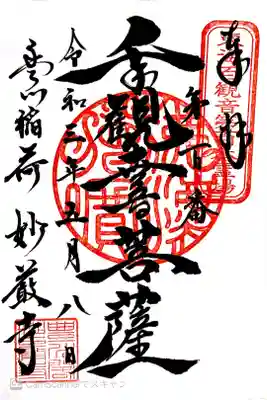 奉拝
第百番
千手觀音菩薩
令和三年五月八日
豊川稲荷 妙厳寺
CamScannerでスキャン